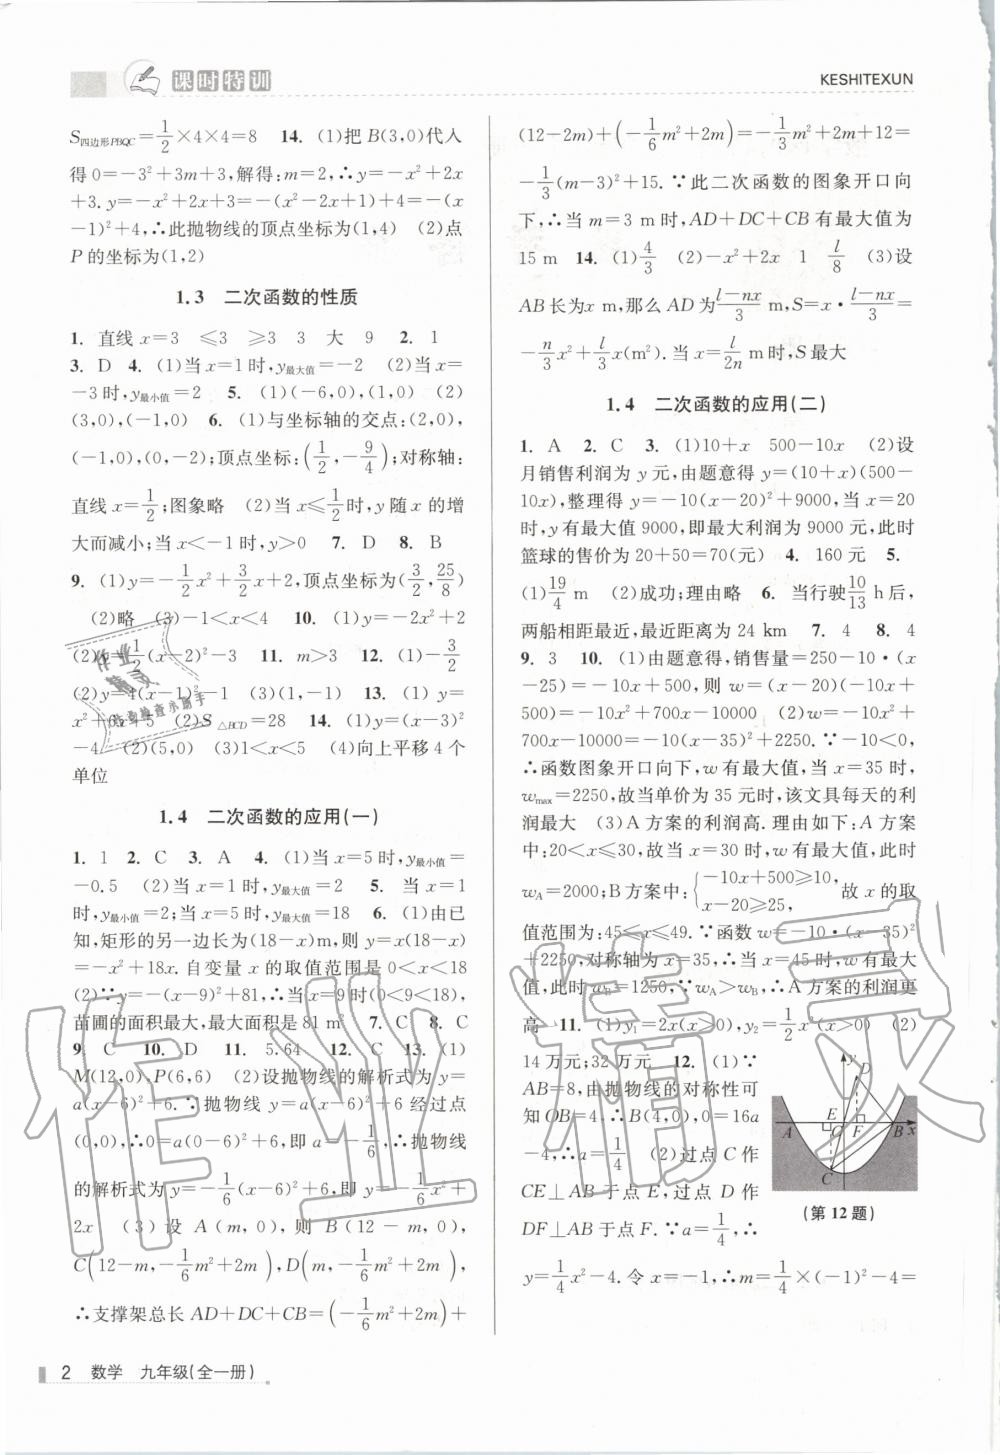 课时特训
KESHITEXUN
S四边形PBQC=1/2×4×4=8 14. (1)把 B(3,0)代入
得 0=-3²+3m+3,解得:m=2,∴y=-x²+2x
+3. y=-x²+2x+3=-(x²-2x+1)+4=-(x
-1)²+4,∴此抛物线的顶点坐标为(1,4) (2)点
P 的坐标为(1,2)
1.3 二次函数的性质
1. 直线 x=3 ≤3 ≥3 3 大 9 2. 1
3. D 4. (1)当 x=1 时,y最大值=-2 (2)当 x=
-3 时,y最小值=2 5. (1)(-6,0),(1,0) (2)
(3,0),(-1,0) 6. (1)与坐标轴的交点:(2,0),
(-1,0),(0,-2);顶点坐标:(1/2,-9/4);对称轴:
直线 x=1/2;图象略 (2)当 x≤1/2时,y 随 x 的增
大而减小;当 x<-1 时,y>0 7. D 8. B
9. (1)y=-1/2x²+3/2x+2,顶点坐标为(3/2,25/8)
(2)略 (3)-1<x<4 10. (1)y=-2x²+2
(2)y=1/2(x-2)²-3 11. m>3 12. (1)-3/2
(2)y=4(x-1)²-1 (3)(1,-1) 13. (1) y=
x²+6x+5 (2)S△BCD=28 14. (1)y=(x-3)²
-4 (2)(5,0) (3)1<x<5 (4)向上平移 4 个
单位
1.4 二次函数的应用(一)
1. 1 2. C 3. A 4. (1)当 x=5 时,y最小值=
-0.5 (2)当 x=1 时,y最大值=2 5. 当 x=1
时,y最小值=2;当 x=5 时,y最大值=18 6. (1)由已
知,矩形的另一边长为(18-x)m,则 y=x(18-x)
=-x²+18x. 自变量 x 的取值范围是 0<x<18
(2)∵y=-(x-9)²+81,∴当 x=9 时(0<9<18),
苗圃的面积最大,最大面积是 81 m² 7. C 8. C
9. C 10. D 11. 5.64 12. C 13. (1)
M(12,0),P(6,6) (2)设抛物线的解析式为 y=
a(x-6)²+6.∵抛物线 y=a(x-6)²+6 经过点
(0,0),∴0=a(0-6)²+6,即 a=-1/6,∴抛物线
的解析式为 y=-1/6(x-6)²+6,即 y=-1/6x²+
2x (3) 设 A(m,0),则 B(12-m,0),
C(12-m,-1/6m²+2m),D(m,-1/6m²+2m),
∴支撑架总长 AD+DC+CB=(-1/6m²+2m)+
(12-2m)+(-1/6m²+2m)=-1/3m²+2m+12=
-1/3(m-3)²+15.∵此二次函数的图象开口向
下,∴当 m=3 m 时,AD+DC+CB 有最大值为
15 m 14. (1)4/3 (2)-x²+2x 1 l/8 (3)设
AB 长为 x m,那么 AD 为(l-nx)/3 m,S=x·(l-nx)/3=
-n/3x²+l/3x(m²). 当 x=l/2n m 时,S 最大
1.4 二次函数的应用(二)
1. A 2. C 3. (1)10+x 500-10x (2)设
月销售利润为 y 元,由题意得 y=(10+x)(500-
10x),整理得 y=-10(x-20)²+9000,当 x=20
时,y 有最大值 9000,即最大利润为 9000 元,此时
篮球的售价为 20+50=70(元) 4. 160 元 5.
(1)19/4 m (2)成功;理由略 6. 当行驶10/13 h 后,
两船相距最近,最近距离为 24 km 7. 4 8. 4
9. 3 10. (1)由题意得,销售量=250-10·(x
-25)=-10x+500,则 w=(x-20)(-10x+
500)=-10x²+700x-10000 (2)w=-10x²+
700x-10000=-10(x-35)²+2250.∵-10<0,
∴函数图象开口向下,w 有最大值,当 x=35 时,
wmax=2250,故当单价为 35 元时,该文具每天的利
润最大 (3)A 方案的利润高. 理由如下:A 方案
中:20<x≤30,故当 x=30 时,w 有最大值,此时
wA=2000;B方案中:{-10x+500≥10, x-20≥25, 故 x 的取
值范围为:45≤x≤49.∵函数 w=-10·(x-35)²
+2250,对称轴为 x=35,∴当 x=45 时,w 有最大
值,此时 wB=1250,∵wA>wB,∴A 方案的利润更
高 11. (1)y₁=2x(x>0),y₂=1/2x²(x>0) (2)
14 万元;32 万元 12. (1)∵
AB=8,由抛物线的对称性可
知 OB=4,∴B(4,0),0=16a
-4,∴a=1/4 (2)过点 C 作
CE⊥AB 于点 E,过点 D 作
DF⊥AB 于点 F.∵a=1/4,∴
y=1/4x²-4. 令 x=-1,∴m=1/4×(-1)²-4=
y
D
E
A
O
F
B
x
C
(第 12 题)
2 数学 九年级(全一册)
作业精灵
作业
精灵